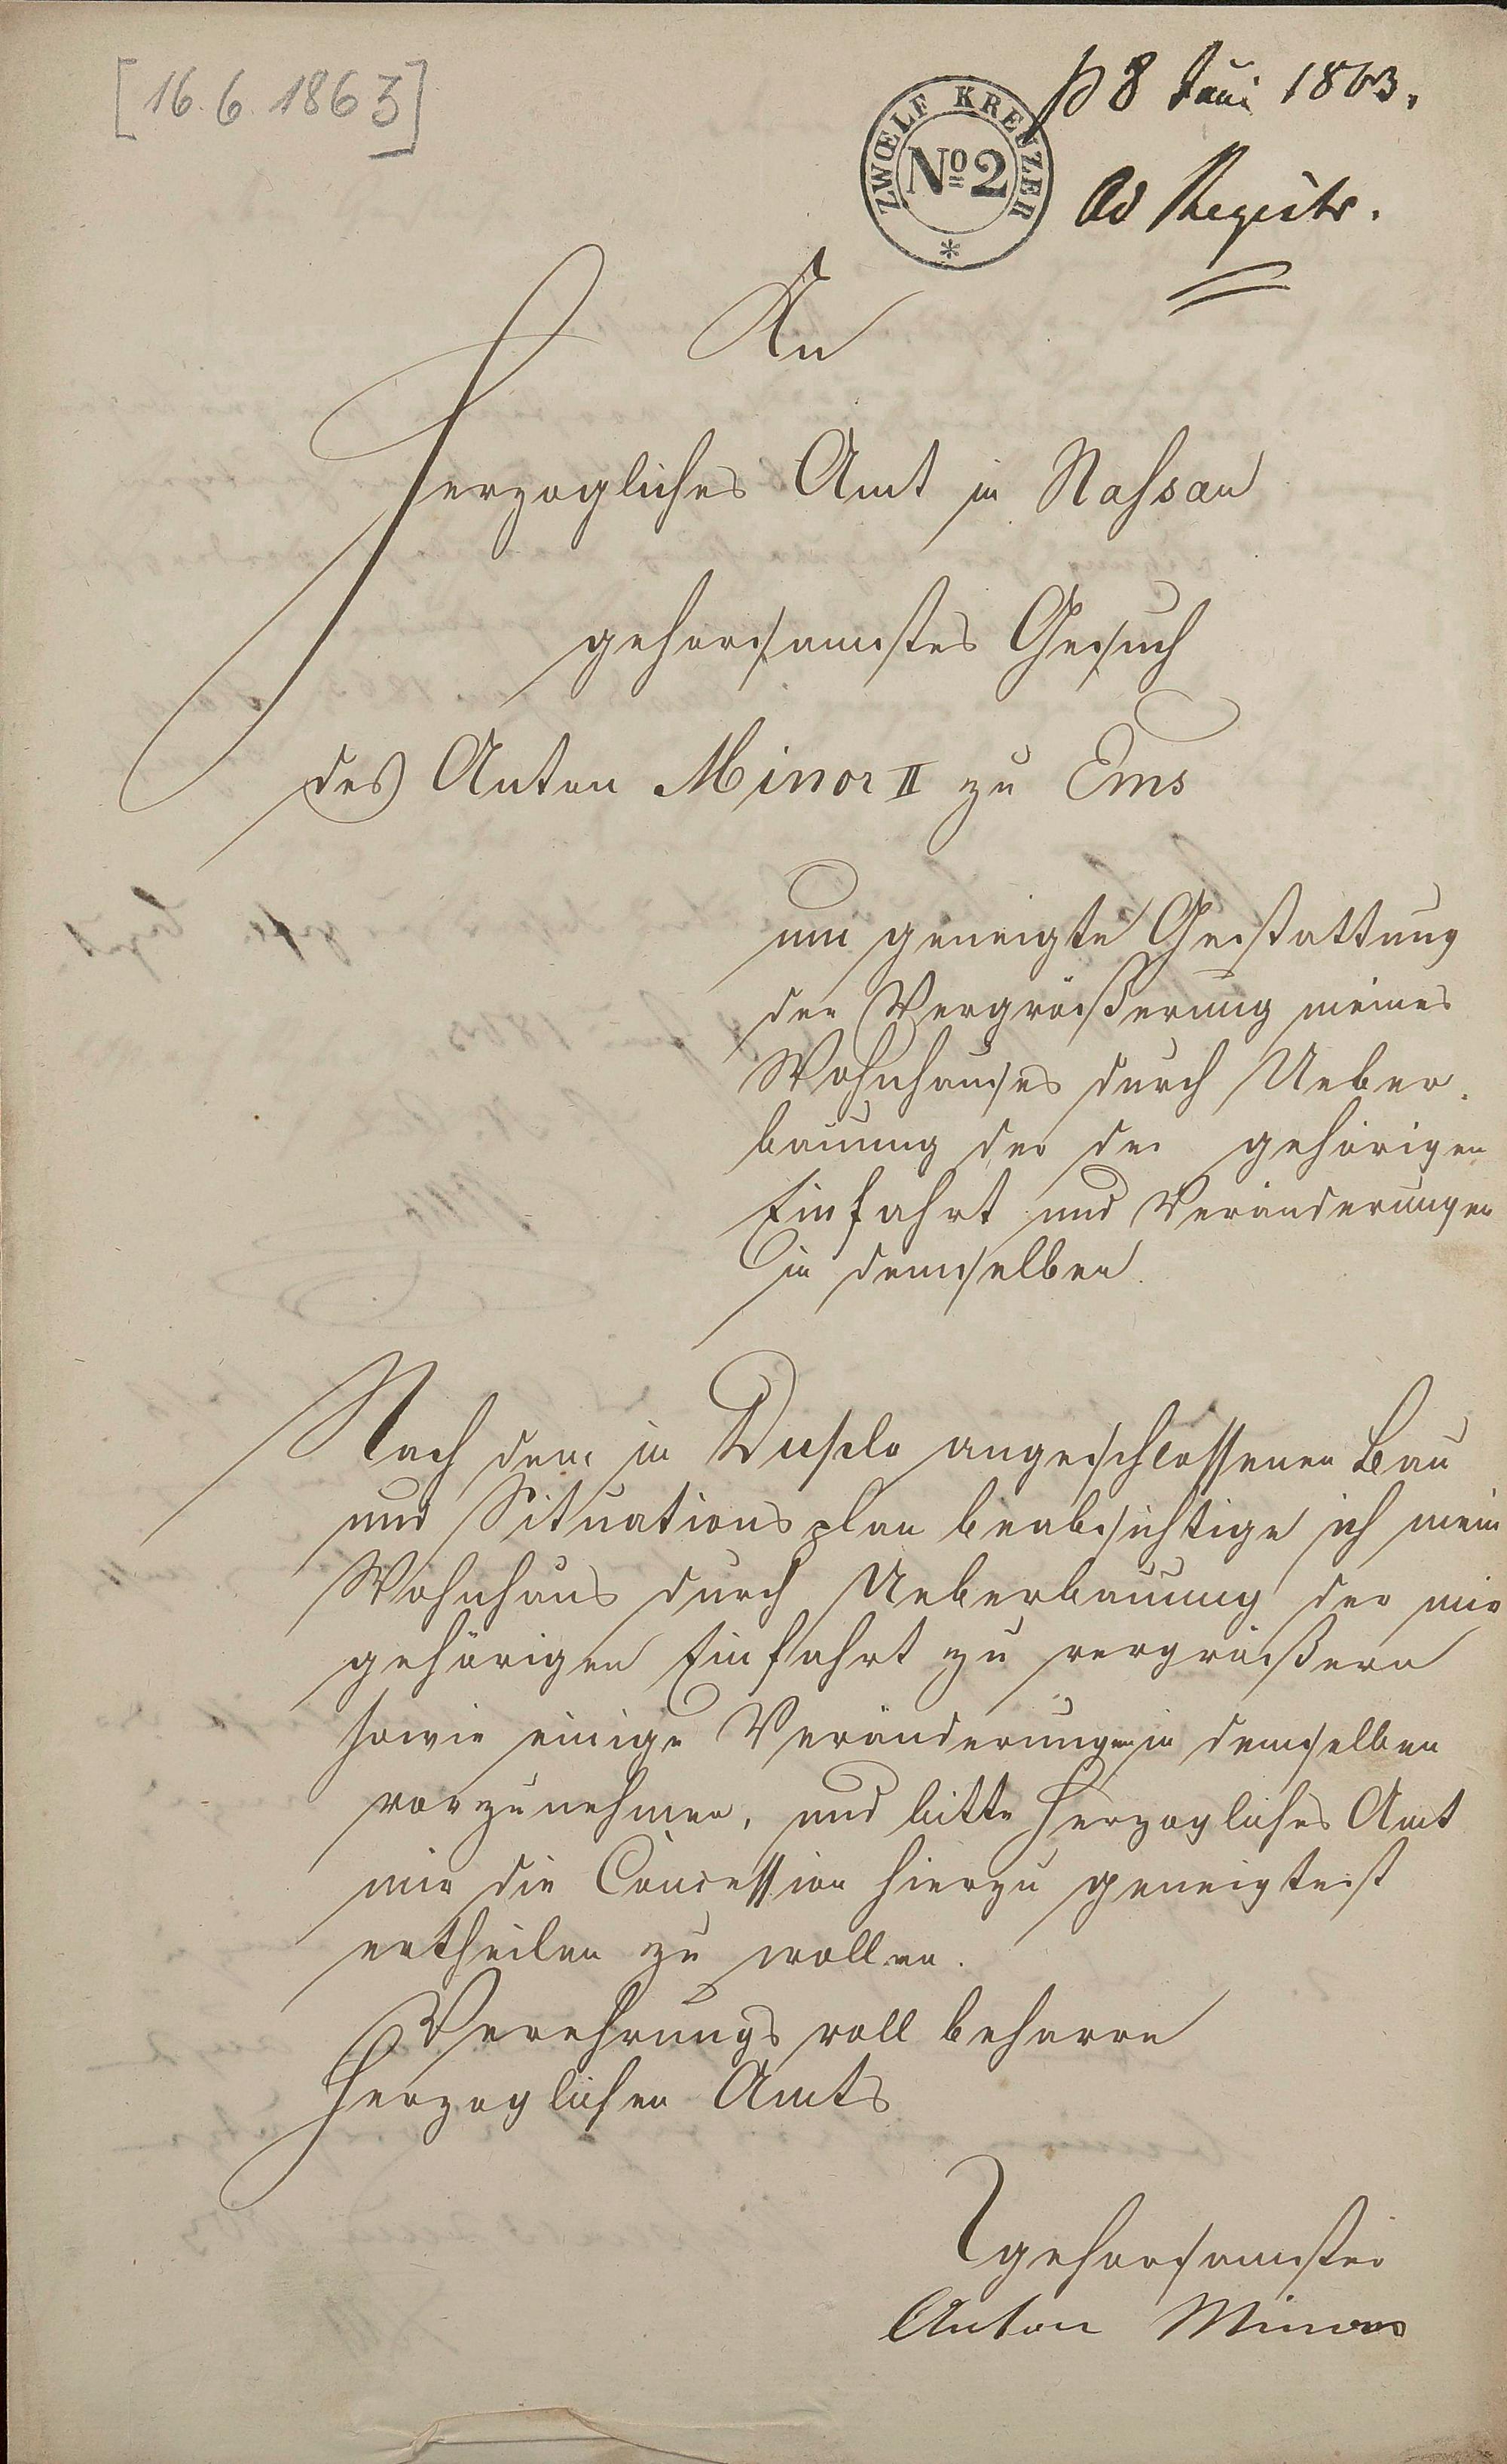 [16.6.1863]
p 8 Juni 1863.
ZWŒLF KREUZER
No 2
*
Ad Registr.
An
Herzogliches Amt in Nassau
gehorsamstes Gesuch
des Anton Minor II zu Ems
um geneigte Gestattung
der Vergrößerung meines
Wohnhauses durch Ueber-
bauung der der gehörigen
Einfahrt und Veränderungen
in demselben.
Nach dem in Duplo angeschlossenen Bau
und Situationsplan beabsichtige ich mein
Wohnhaus durch Ueberbauung der mir
gehörigen Einfahrt zu vergrößern
sowie einige Veränderungen in demselben
vorzunehmen, und bitte Herzogliches Amt
mir die Concession hierzu geneigtest
ertheilen zu wollen.
Verehrungsvoll beharre
Herzoglichen Amts
gehorsamster
Anton Minor